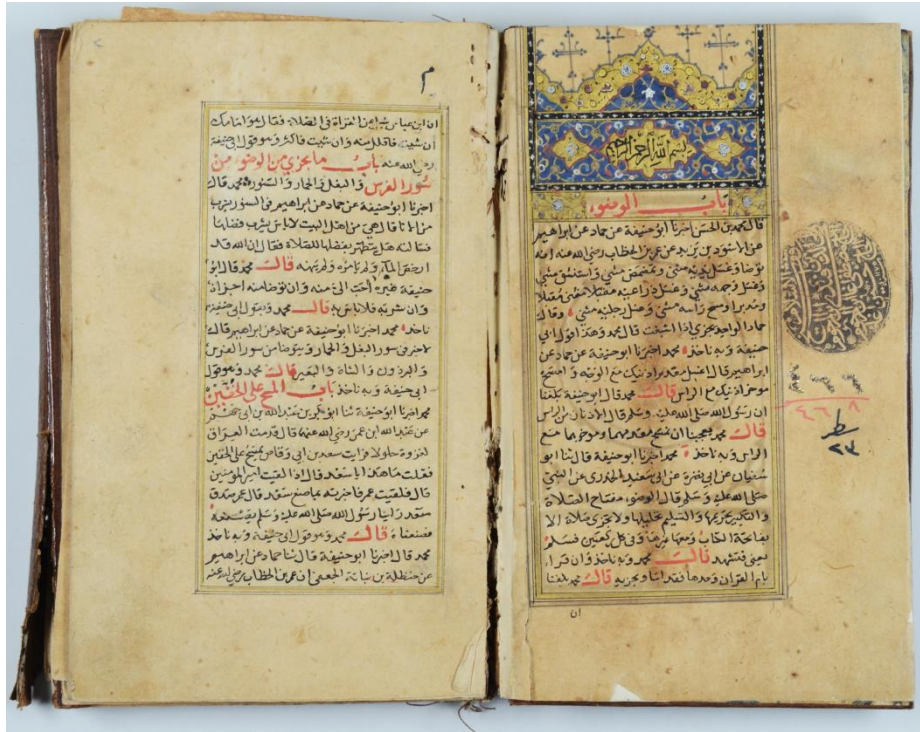 بسم الله الرحمن الرحيم
باب الوضوء
قال محمد بن الحسن اخبرنا ابو حنيفة عن حماد عن ابراهيم
عن الاسود بن يزيد عن عمر بن الخطاب رضي الله عنه انه
توضا وغسل يديه مثنى وتمضمض مثنى واستنشق مثنى
وغسل وجهه مثنى وغسل ذراعيه مقبلا مثنى مقبلا
ومدبرا ومسح راسه مثنى وغسل رجليه مثنى وقال
حماد الواحدة تجزي اذا اسبغت قال محمد وهذا قول ابي
حنيفة وبه ناخذ محمد اخبرنا ابو حنيفة عن حماد عن
ابراهيم قال اغسل مقدم اذنيك مع الوجه وامسح
موخر اذنيك مع الراس قال محمد قال ابو حنيفة بلغنا
ان رسول الله صلى الله عليه وسلم قال الاذنان من الراس
قال محمد يعجبنا ان نمسح مقدمهما وموخرهما مع
الراس وبه ناخذ محمد اخبرنا ابو حنيفة قال ثنا ابو
سفيان عن ابي نضرة عن ابي سعيد الخدري عن النبي
صلى الله عليه وسلم قال الوضوء مفتاح الصلاة
والتكبير تحريمها والتسليم تحليلها ولا تجزي صلاة الا
بفاتحة الكتاب ومعها غيرها وفي كل ركعتين فسلم
يعني فتشهد قال محمد وبه ناخذ وان قراء
بام القران وحدها فقد اسا ويجزيه قال محمد بلغنا
ان
٤٦ ٨
سطر
٢٣
م
ان ابن عباس سئل عن القراة في الصلاة فقال هو امامك
ان شيت فاقلل منه وان شيت فاكثر وهو قول ابي حنيفة
رضي الله عنه باب ما يجزي من الوضوء من
سور الفرس والبغل والحمار والسنور محمد قال
اخبرنا ابو حنيفة عن حماد عن ابراهيم في السنور يشرب
من الانا قال هي من اهل البيت لا باس بشرب فضلها
فسالته هل يتطهر بفضلها للصلاة فقال ان الله قد
ارخص الماء ولم يامره ولم ينهه قال محمد قال ابو
حنيفة غيره احب الي منه وان توضا منه اجزاه
وان شربه فلا باس به قال محمد وبقول ابي حنيفة
ناخذ محمد اخبرنا ابو حنيفة عن حماد عن ابراهيم قال
لا خير في سور البغل والحمار ويتوضا من سور الفرس
والبرذون والشاة والبعير قال محمد وهو قول
ابي حنيفة وبه ناخذ باب المسح على الخفين
محمد اخبرنا ابو حنيفة ثنا ابو بكر بن عبد الله بن ابي جهم
عن عبد الله ابن عمر رضي الله عنه قال قدمت العراق
لغزوة جلولا فرايت سعد بن ابي وقاص يمسح على الخفين
فقلت ما هذا يا سعد قال اذا لقيت امير المومنين
قال فلقيت عمر فاخبرته بما صنع سعد قال عمر صدق
سعد راينا رسول الله صلى الله عليه وسلم يصنعه
فصنعناه قال محمد وهو قول ابي حنيفة وبه ناخذ
محمد قال اخبرنا ابو حنيفة قال ثنا حماد عن ابراهيم
عن حنظلة بن نباتة الجعفي ان عمر بن الخطاب رضي الله عنه